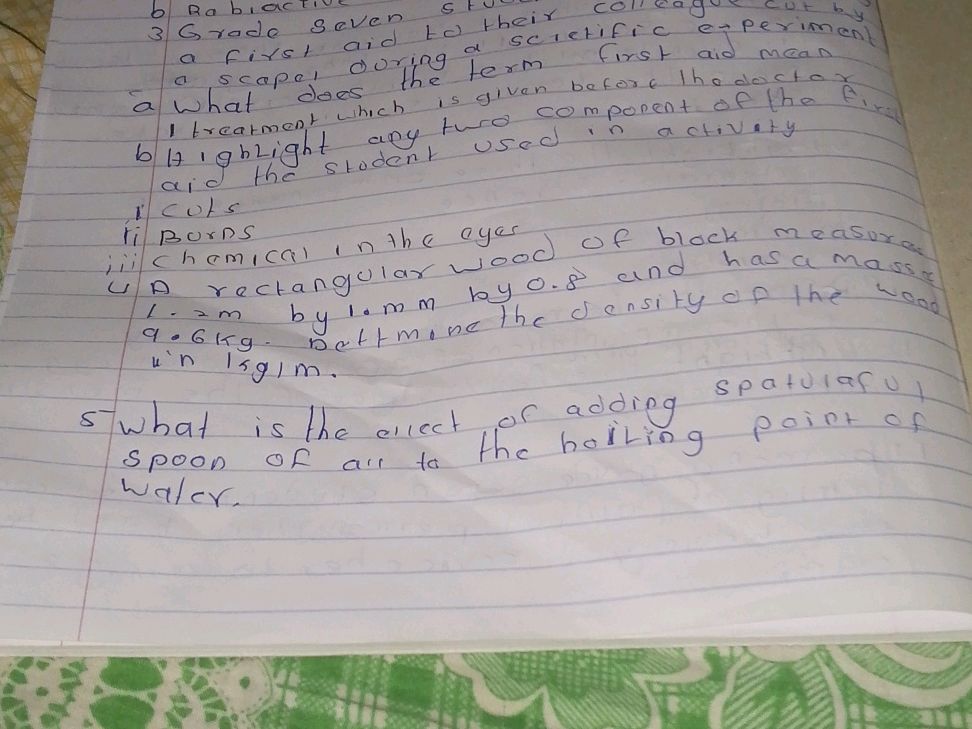 b Rabiactive
3 Grade Seven
a first aid to their colleague cut by
a scapel During a scietific experiment
a what does the term first aid mean
1 treatment which is given before the doctor
b Highlight any two component of the first
aid the student used in activity
i cuts
ii Burns
iii chemical in the eyes
4 A rectangular wood of block measure
1.2m by 1.0mm by 0.8 and has a mass
9.6kg. Dettmine the density of the wood
in kg/m.
5 what is the effect of adding spatulaful
spoon of to the boiling point of
water.